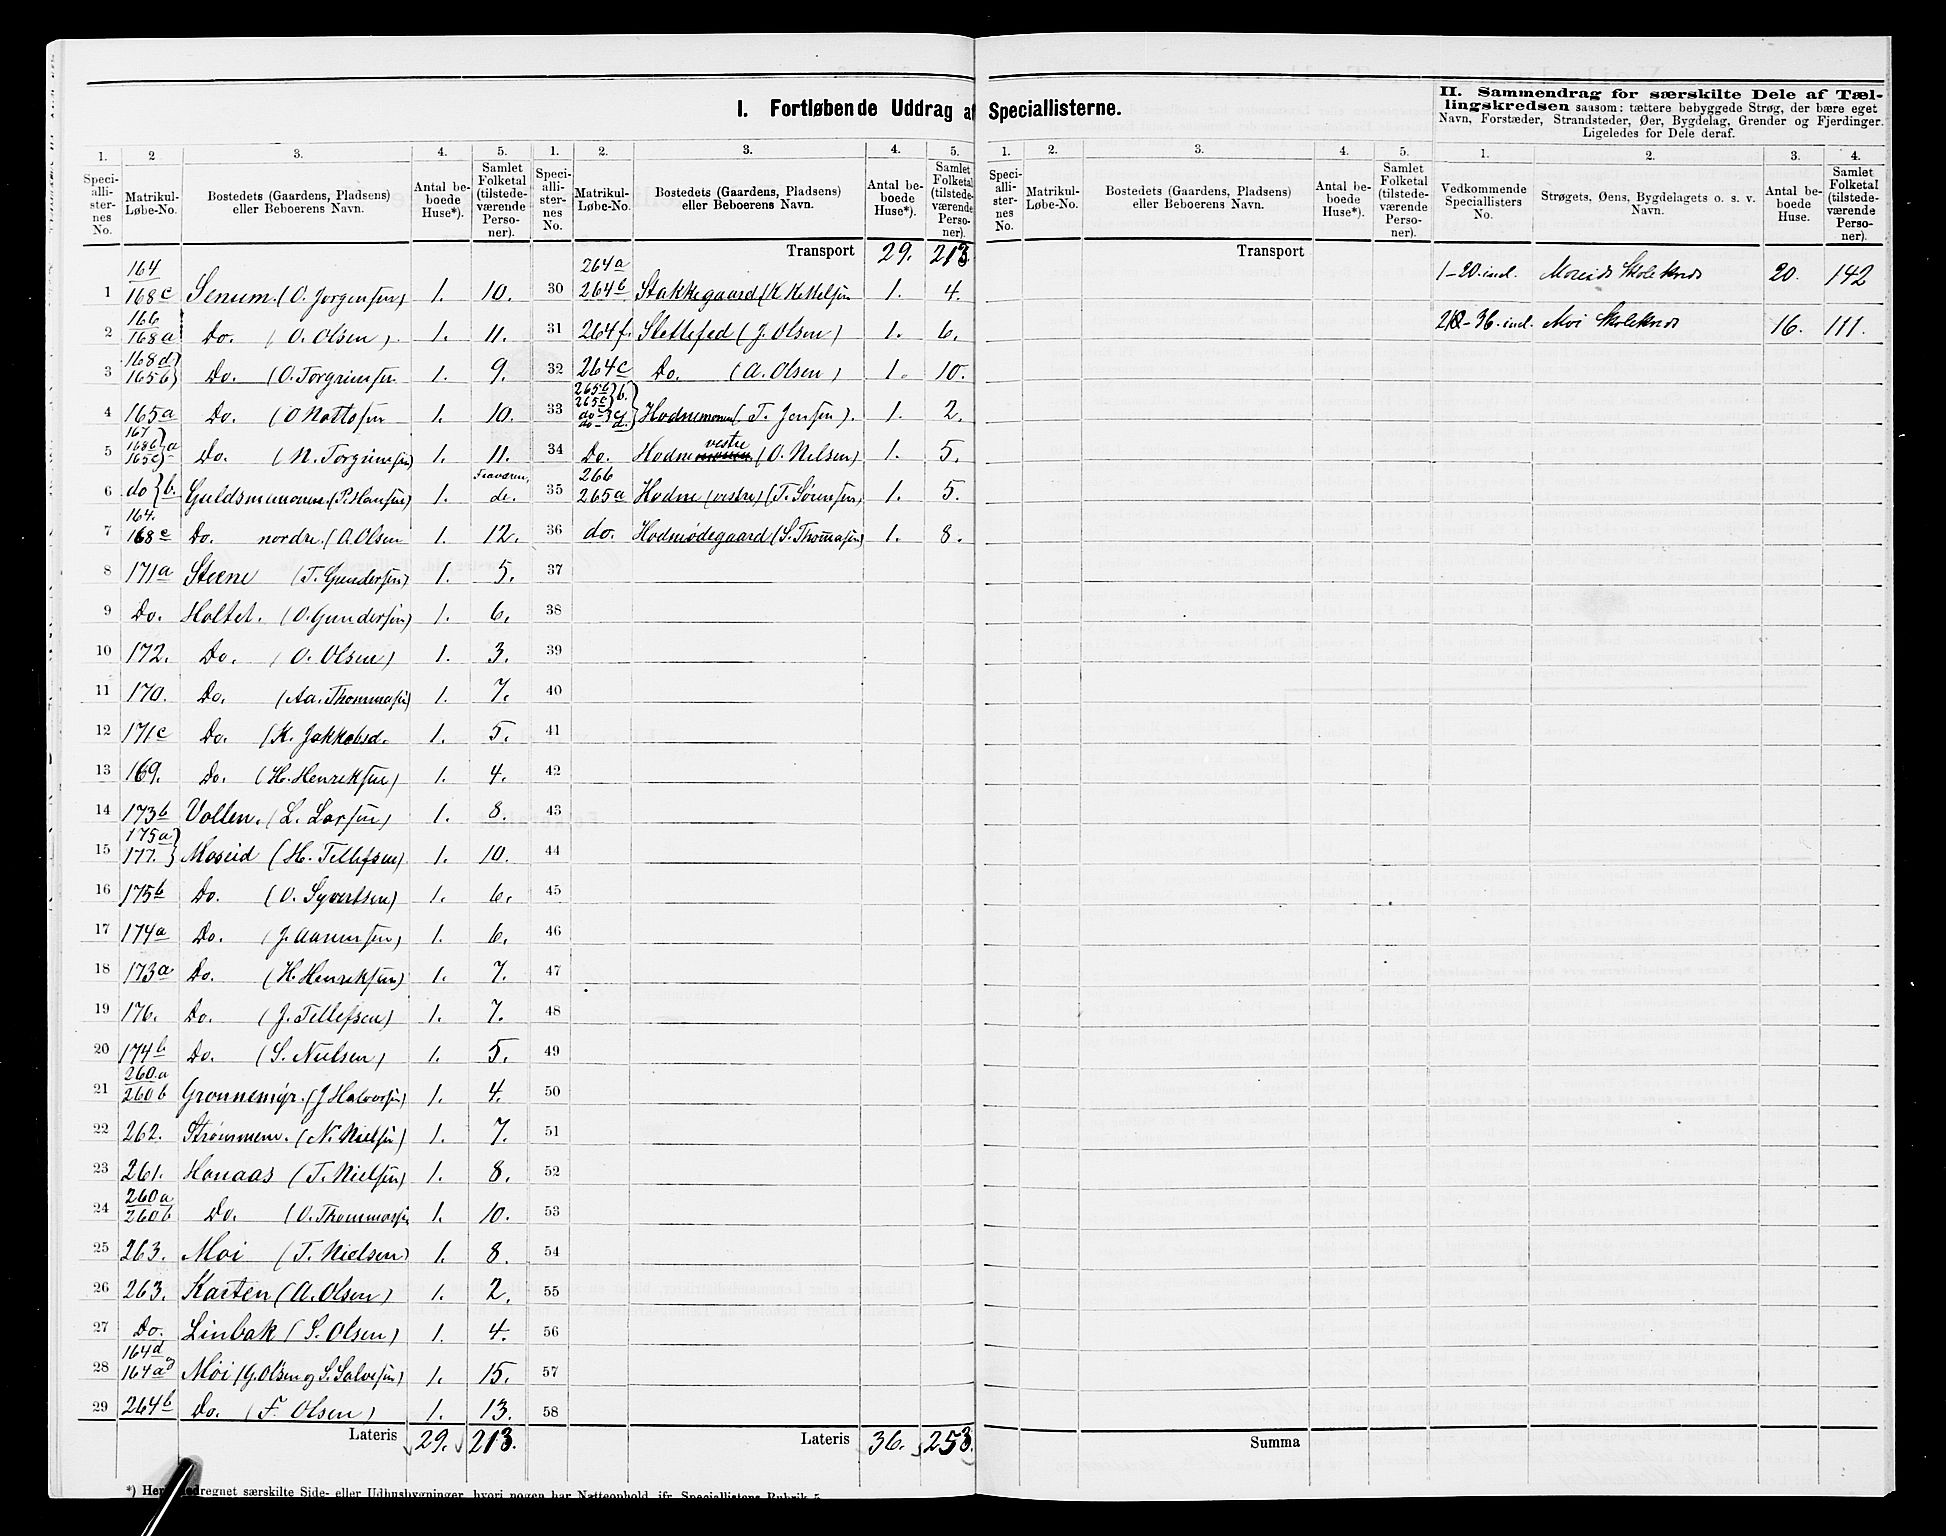 I. Fortløbende Uddrag af Speciallisterne.
II. Sammendrag for særskilte Dele af Tællingskredsen saasom: tættere bebyggede Strøg, der bære eget Navn, Forstæder, Strandsteder, Øer, Bygdelag, Grender og Fjerdinger. Ligeledes for Dele deraf.
1. 2 3. 4. 5. 1. 2. 3. 4. 5.
Speciallisternes No. Matrikul-Løbe-No. Bostedets (Gaardens, Pladsens) eller Beboerens Navn. Antal beboede Huse*). Samlet Folketal (tilstedeværende Personer).
Speciallisternes No. Matrikul-Løbe-No. Bostedets (Gaardens, Pladsens) eller Beboerens Navn. Antal beboede Huse*). Samlet Folketal (tilstedeværende Personer).
1 164 168c Senum. (O. Jorgensen) 1. 10.
2 166 168a Do. (O. Olsen) 1. 11.
3 168d 165b Do. (O. Torgrimsen 1. 9.
4 165a Do. (O 1. 10.
5 167 168b 165c a Do. (N. Torgrimsen) 1. 11.
6 do b. (P. Hansen) 1. Fraværende.
7 164. 168e Do. nordre. (A. Olsen 1. 12.
8 171a Steene (T. Gundersen) 1. 5.
9 Do. Holtet. (O. Gundersen) 1. 6.
10 172. Do. (O. Olsen) 1. 3.
11 170. Do. (Aa. Thommasen) 1. 7.
12 171c Do. (K. Jakkobsd. 1. 5.
13 169. Do. (H. Henriksen) 1. 4.
14 173b Vollen. (L. Larsen) 1. 8.
15 175a 177. Moseid (H. Tellefsen) 1. 10.
16 175b Do. (O. Syvertsen) 1. 6.
17 174a Do. (J. Aanensen) 1. 6.
18 173a Do. (H. Henriksen) 1. 7.
19 176. Do. (J. Tellefsen) 1. 7.
20 174b Do. (S. Nielsen) 1. 5.
21 260a 260b (J Halvorsen) 1. 4.
22 262. Strømmene. (N. Nielsen) 1. 7.
23 261. Honaas (T. Nielsen) 1. 8.
24 260a 260b Do. (O. Thommasen 1. 10.
25 263. Moi (T. Nielsen) 1. 8.
26 263. Kasten (A. Olsen) 1. 2.
27 Do. Linbak (S. Olsen) 1. 4.
28 164d 164a Moi (G. Olsen og S. Salvesen) 1. 15.
29 264b Do. (F. Olsen) 1. 13.
Lateris 29. 213.
Transport 29. 213
30 264a 264b Stakkegaard (K Kettelsen 1. 4.
31 264f. Slettefed (J. Olsen) 1. 6.
32 264c Do. (A. Olsen) 1. 10.
33 265b 265c b. do do c. d. Hodnemonen (T. Jensen). 1. 2.
34 Do. Hodne vestre (O. Nelsen) 1. 5.
35 266 265a Hodne (vestre) (T. Sørensen) 1. 5.
36 do. Hodnødegaard (S. Thomasen) 1. 8.
37
38
39
40
41
42
43
44
45
46
47
48
49
50
51
52
53
54
55
56
57
58
Lateris 36. 253.
1. 2. 3. 4. 5. 1. 2. 3. 4.
Speciallisternes No. Matrikul-Løbe-No. Bostedets (Gaardens, Pladsens) eller Beboerens Navn. Antal beboede Huse*). Samlet Folketal (tilstedeværende Personer).
Vedkommende Speciallisters No. Strøgets, Øens, Bygdelagets o. s. v. Navn. Antal beboede Huse. Samlet Folketal (tilstedeværende Personer).
Transport
1-20. incl. Moseids Skolekreds 20. 142
21-36. incl. Moi Skolekreds 16. 111.
Summa
*) regnet særskilte Side- eller Udhusbygninger, hvori nogen har Natteophold, jfr. Speciallistens Rubrik 5.